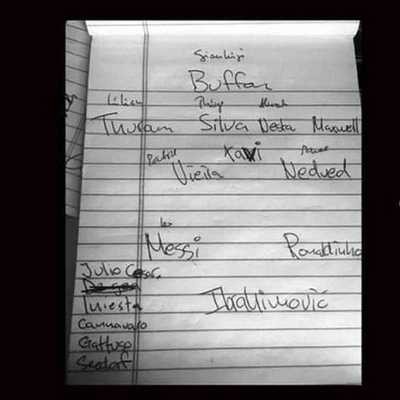 Gianluigi
Buffon
Lilian
Thuram Silva Nesta Maxwell
Patrick Xavi Pavel
Vieira Nedved
Leo
Messi Ronaldinho
Julio Cesar
Iniesta Ibrahimovic
Cannavaro
Gattuso
Seedorf